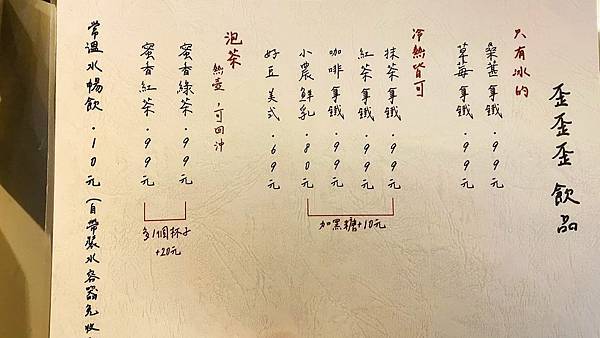 歪歪歪 飲品
只有冰的
桑葚拿鐵．99元
草莓拿鐵．99元
冷熱皆可
抹茶拿鐵．99元
紅茶拿鐵．99元
咖啡拿鐵．99元
小農鮮乳．80元
加黑糖+10元
好豆美式．69元
泡茶
熱壺，可回沖
蜜香綠茶．99元
蜜香紅茶．99元
多1個杯子
+20元
常溫水暢飲．10元（自帶裝水容器免收